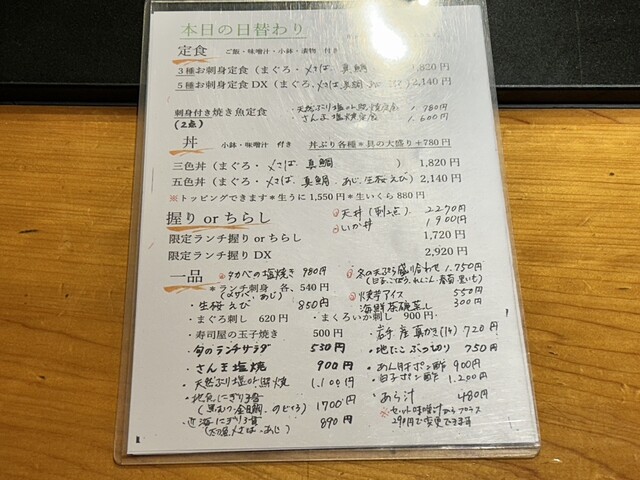 本日の日替わり
定食 ご飯・味噌汁・小鉢・漬物 付き
3種お刺身定食(まぐろ・〆さば、真鯛 ) 1,820円
5種お刺身定食DX(まぐろ、〆さば、真鯛 2,140円
刺身付き焼き魚定食 ・天然ぶり塩or照焼定食 1,780円
(2点) ・さんま塩焼定食 1,600円
丼 小鉢・味噌汁 付き 丼ぶり各種*具の大盛り+780円
三色丼(まぐろ・〆さば、真鯛 ) 1,820円
五色丼(まぐろ・〆さば、真鯛、あじ、生桜えび) 2,140円
※トッピングできます*生うに1,550円*生いくら880円
握り or ちらし ・天丼(刺2点) 2270円
・いか丼 1900円
限定ランチ握り or ちらし 1,720円
限定ランチ握り DX 2,920円
一品 タカベの塩焼き 980円 冬の天ぷら盛り合わせ 1,750円
*ランチ刺身 各、540円
(〆サバ、あじ) 焼芋アイス 550円
・生桜えび 850円 海鮮茶碗蒸し 300円
・まぐろ刺し 620円 ・まぐろいか刺し 900円
・寿司屋の玉子焼き 500円 ・岩手産真かき(1ケ) 720円
・旬のランチサラダ 530円 ・地だこぶつ切り 750円
・さんま塩焼 900円 ・あん肝ポン酢 900円
・天然ぶり塩or照焼 1,100円 ・白子ポン酢 1,200円
・地魚にぎり3貫 1700円 ・あら汁 480円
・近海にぎり3貫 890円 ※セット味噌汁からプラス
290円で変更できます